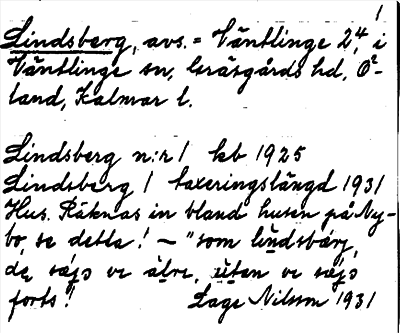 1
Lindsberg, avs. = Väntlinge 2⁴, i
Väntlinge sn, Gräsgårds hd, Ö-
land, Kalmar l.
Lindsberg n:r 1 kb 1925
Lindsberg 1 taxeringslängd 1931
Hus. Räknas in bland husen på Ny-
bo, se detta! — "som lindsbärj,
de säjs ve äldre, utan ve säjs
forts! Lage Nilsson 1931